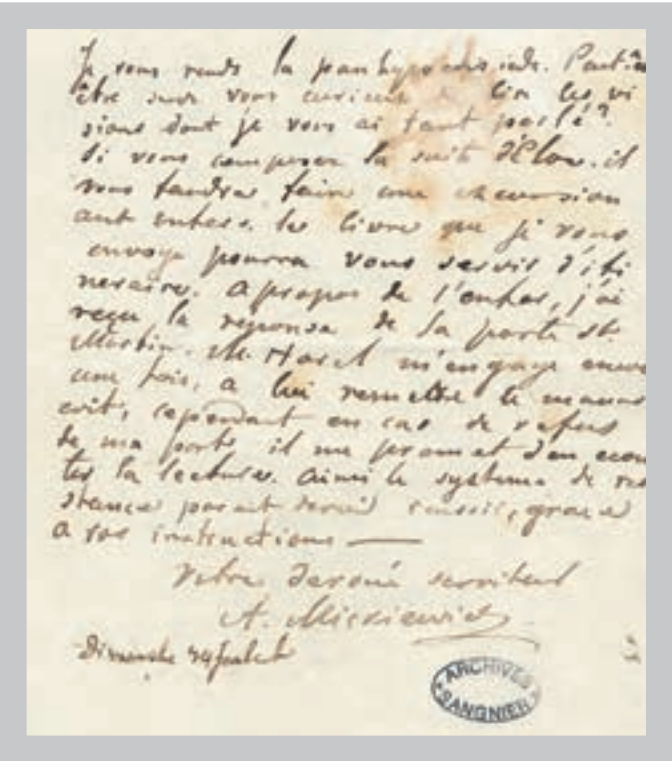 Je vous rends la panhypocrisiade. Peut-
être serez vous curieux de lire les vi
sions dont je vous ai tant parlé?
Si vous composez la suite d'Eloa. il
vous faudra faire une excursion
aux enfers. le livre que je vous
envoye pourra vous servir d'iti
neraire. a propos de l'enfer, j'ai
reçu la reponse de la porte St.
Martin. M. Harel m'engage
une fois, a lui remettre le manus
crit, cependant en cas de refus
de ma part il me promet d'en ecou
ter la lecture. ainsi le systeme de
stance parait devoir reussir, grace
a vos instructions —
Votre devoué serviteur
A. Mickiewicz
Dimanche Juillet
ARCHIVES
SANGNIER